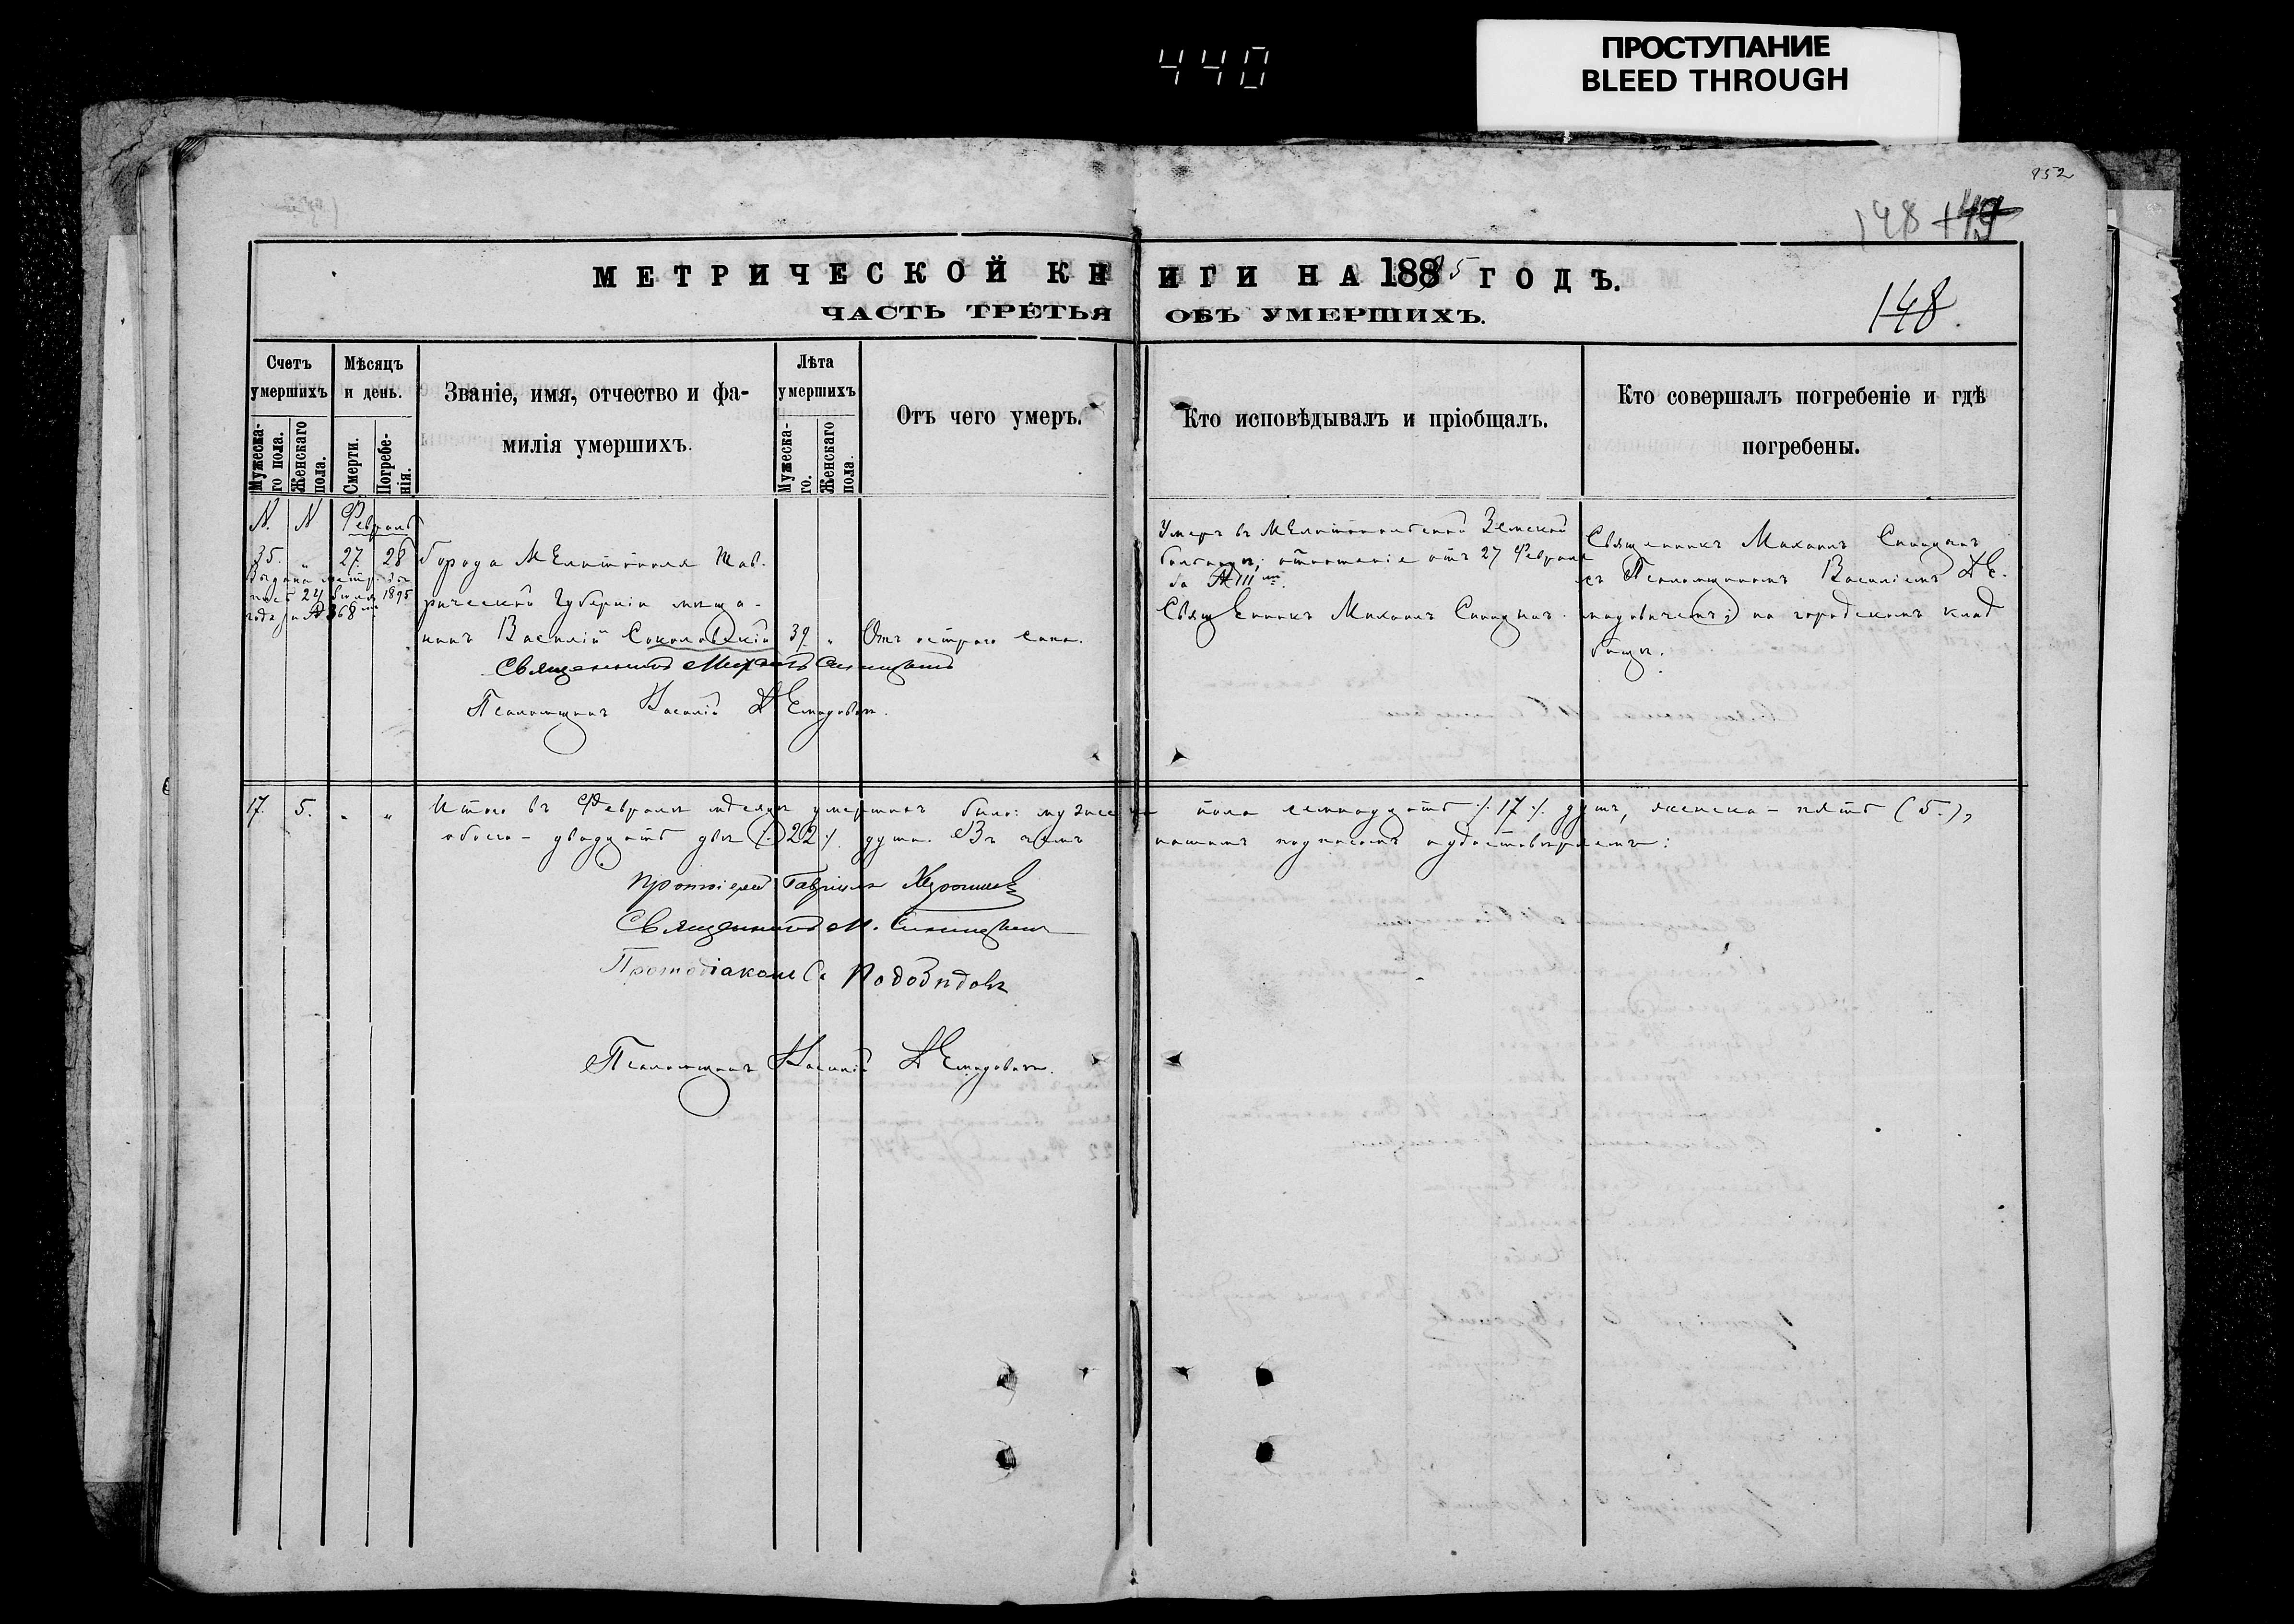 440
ПРОСТУПАНИЕ
BLEED THROUGH
952
148 149
МЕТРИЧЕСКОЙ КНИГИ НА 1885 ГОДЪ.
ЧАСТЬ ТРЕТЬЯ ОБЪ УМЕРШИХЪ.
148.
Счетъ умершихъ
Мужеска-го пола.
Женскаго пола.
Мѣсяцъ и день.
Смерти.
Погребе-нія.
Званіе, имя, отчество и фа-
милія умершихъ.
Лѣта умершихъ
Мужеска-го.
Женскаго пола.
Отъ чего умеръ.
Кто исповѣдывалъ и пріобщалъ.
Кто совершалъ погребеніе и гдѣ
погребены.
N. N Февраль
35. „ 27. 28
Выдана метр.
24 1895
года за № 368
города Мелитополя Тав-
рической Губерніи мѣща-
нинъ Василій Соколовскій 39. „ Отъ остраго сапа.
Священникъ Михаилъ Синицынъ
Псаломщикъ Василій Демидовичъ.
Умеръ въ Мелитопольской Земской
больницѣ, отношеніе отъ 27 Февраля
за № 111
Священникъ Михаилъ Синицынъ.
Священникъ Михаилъ Синицынъ
съ Псаломщикомъ Василіемъ Де-
мидовичемъ; на городскомъ клад
бищѣ.
17. 5. „ „ Итого въ Февралѣ мѣсяцѣ умершихъ было: мужеска пола семнадцать /.17./ душъ, женска – пять (5.),
обоего – двадцать двѣ /.22./ души. Въ чемъ нашимъ подписомъ и удостовѣряемъ:
Протоіерей Гавріилъ
Священникъ М. Синицынъ
Протодіаконъ
Псаломщикъ Василій Демидовичъ.